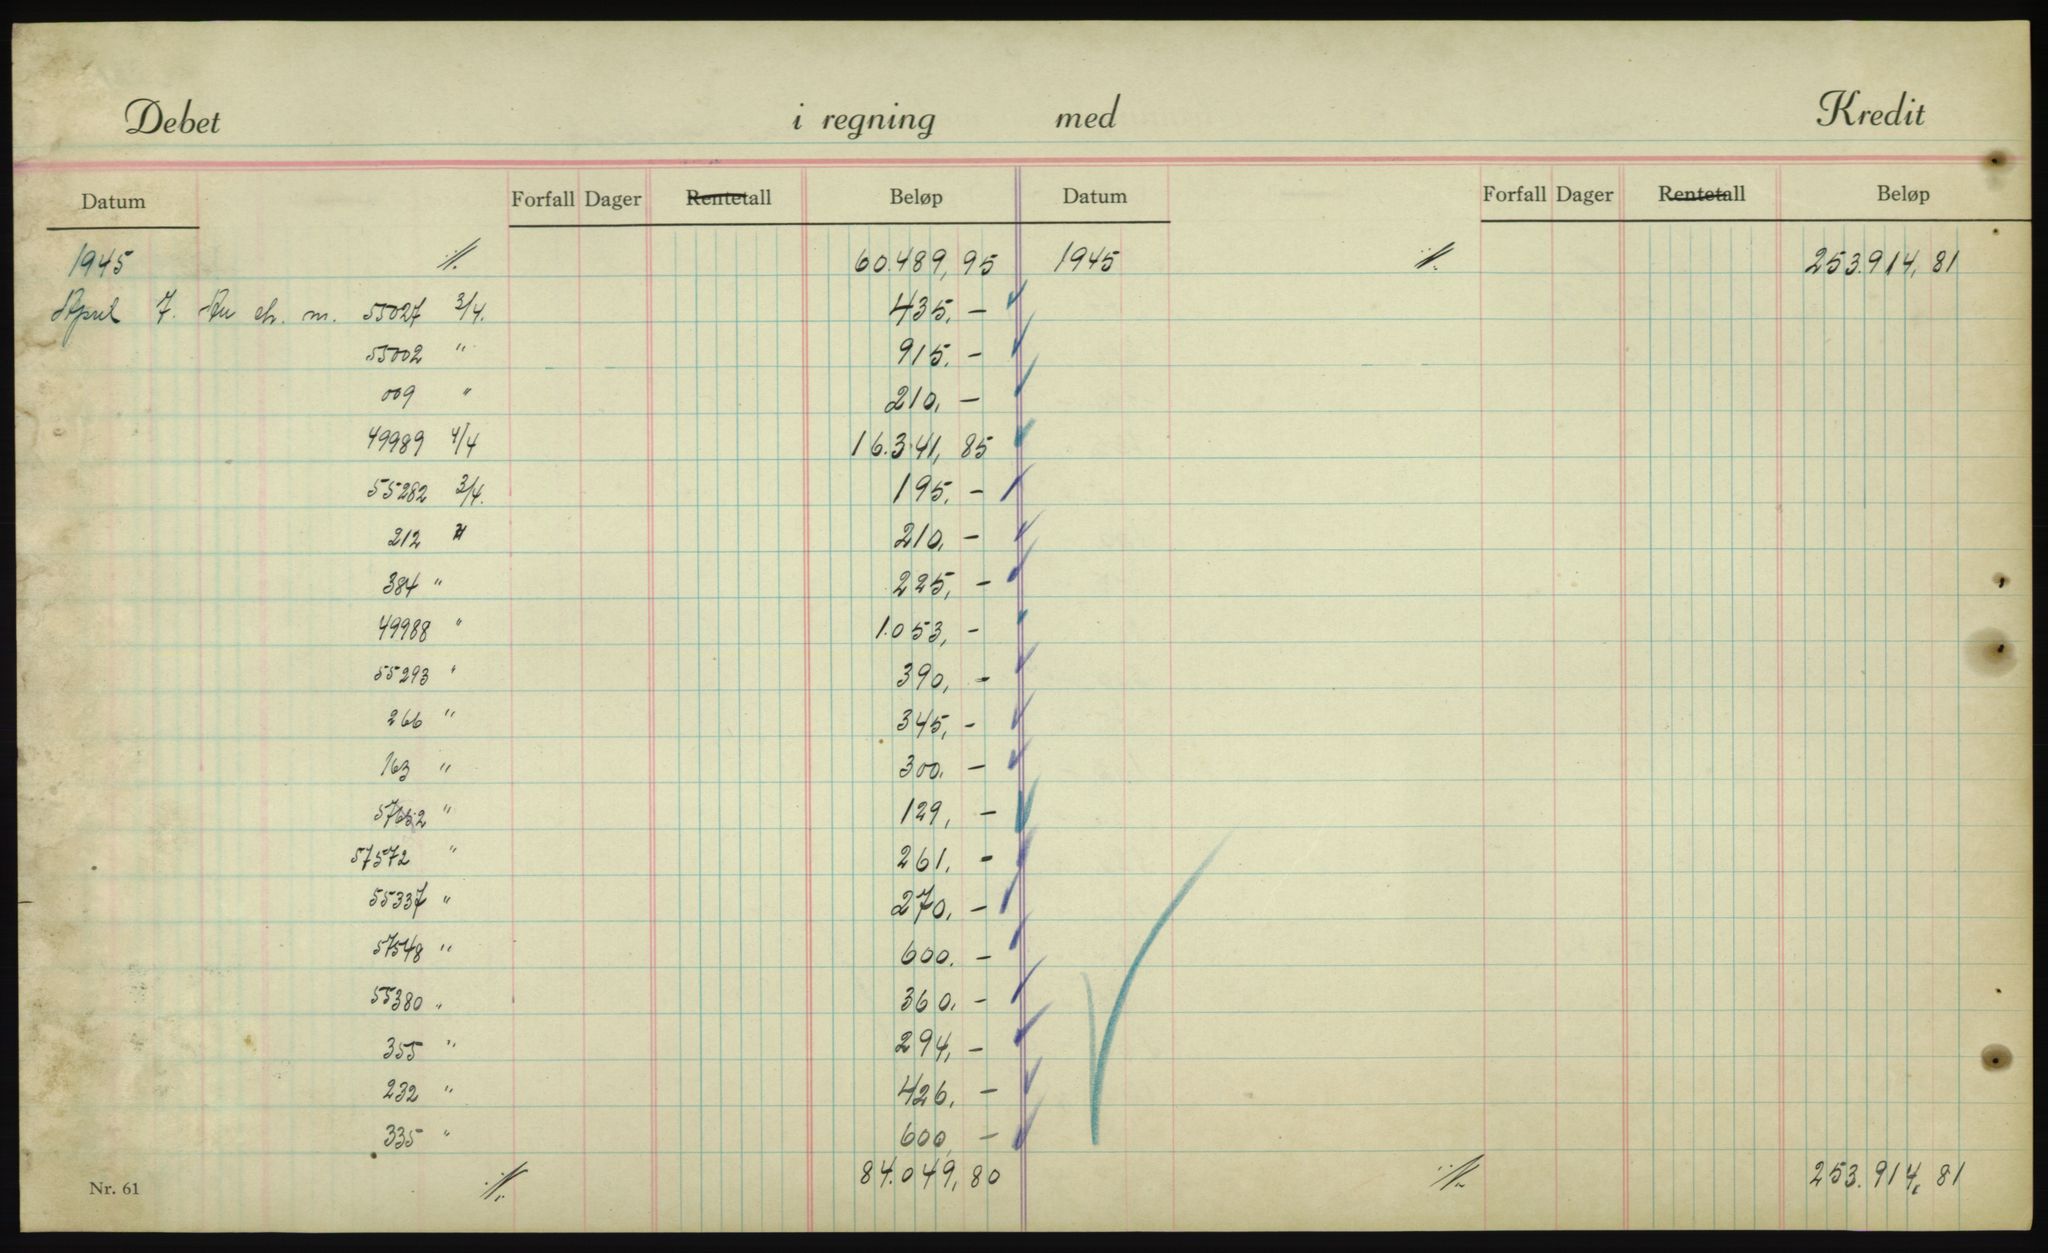 Debet i regning med Kredit
Datum Forfall Dager Rentetall Beløp Datum Forfall Dager Rentetall Beløp
1945 ·/. 60.489,95 1945 ·/. 253.914,81
April 7. An ch. m. 55027 3/4. 435,-
55002 " 915,-
009 " 210,-
49989 4/4 16.341,85
55282 3/4. 195,-
212 " 210,-
384 " 225,-
49988 " 1.053,-
55293 " 390,-
266 " 345,-
163 " 300,-
57652 " 129,-
57572 " 261,-
55337 " 270,-
57548 " 600,-
55380 " 360,-
355 " 294,-
232 " 426,-
335 " 600,-
Nr. 61 ·/. 84.049,80 ·/. 253.914,81